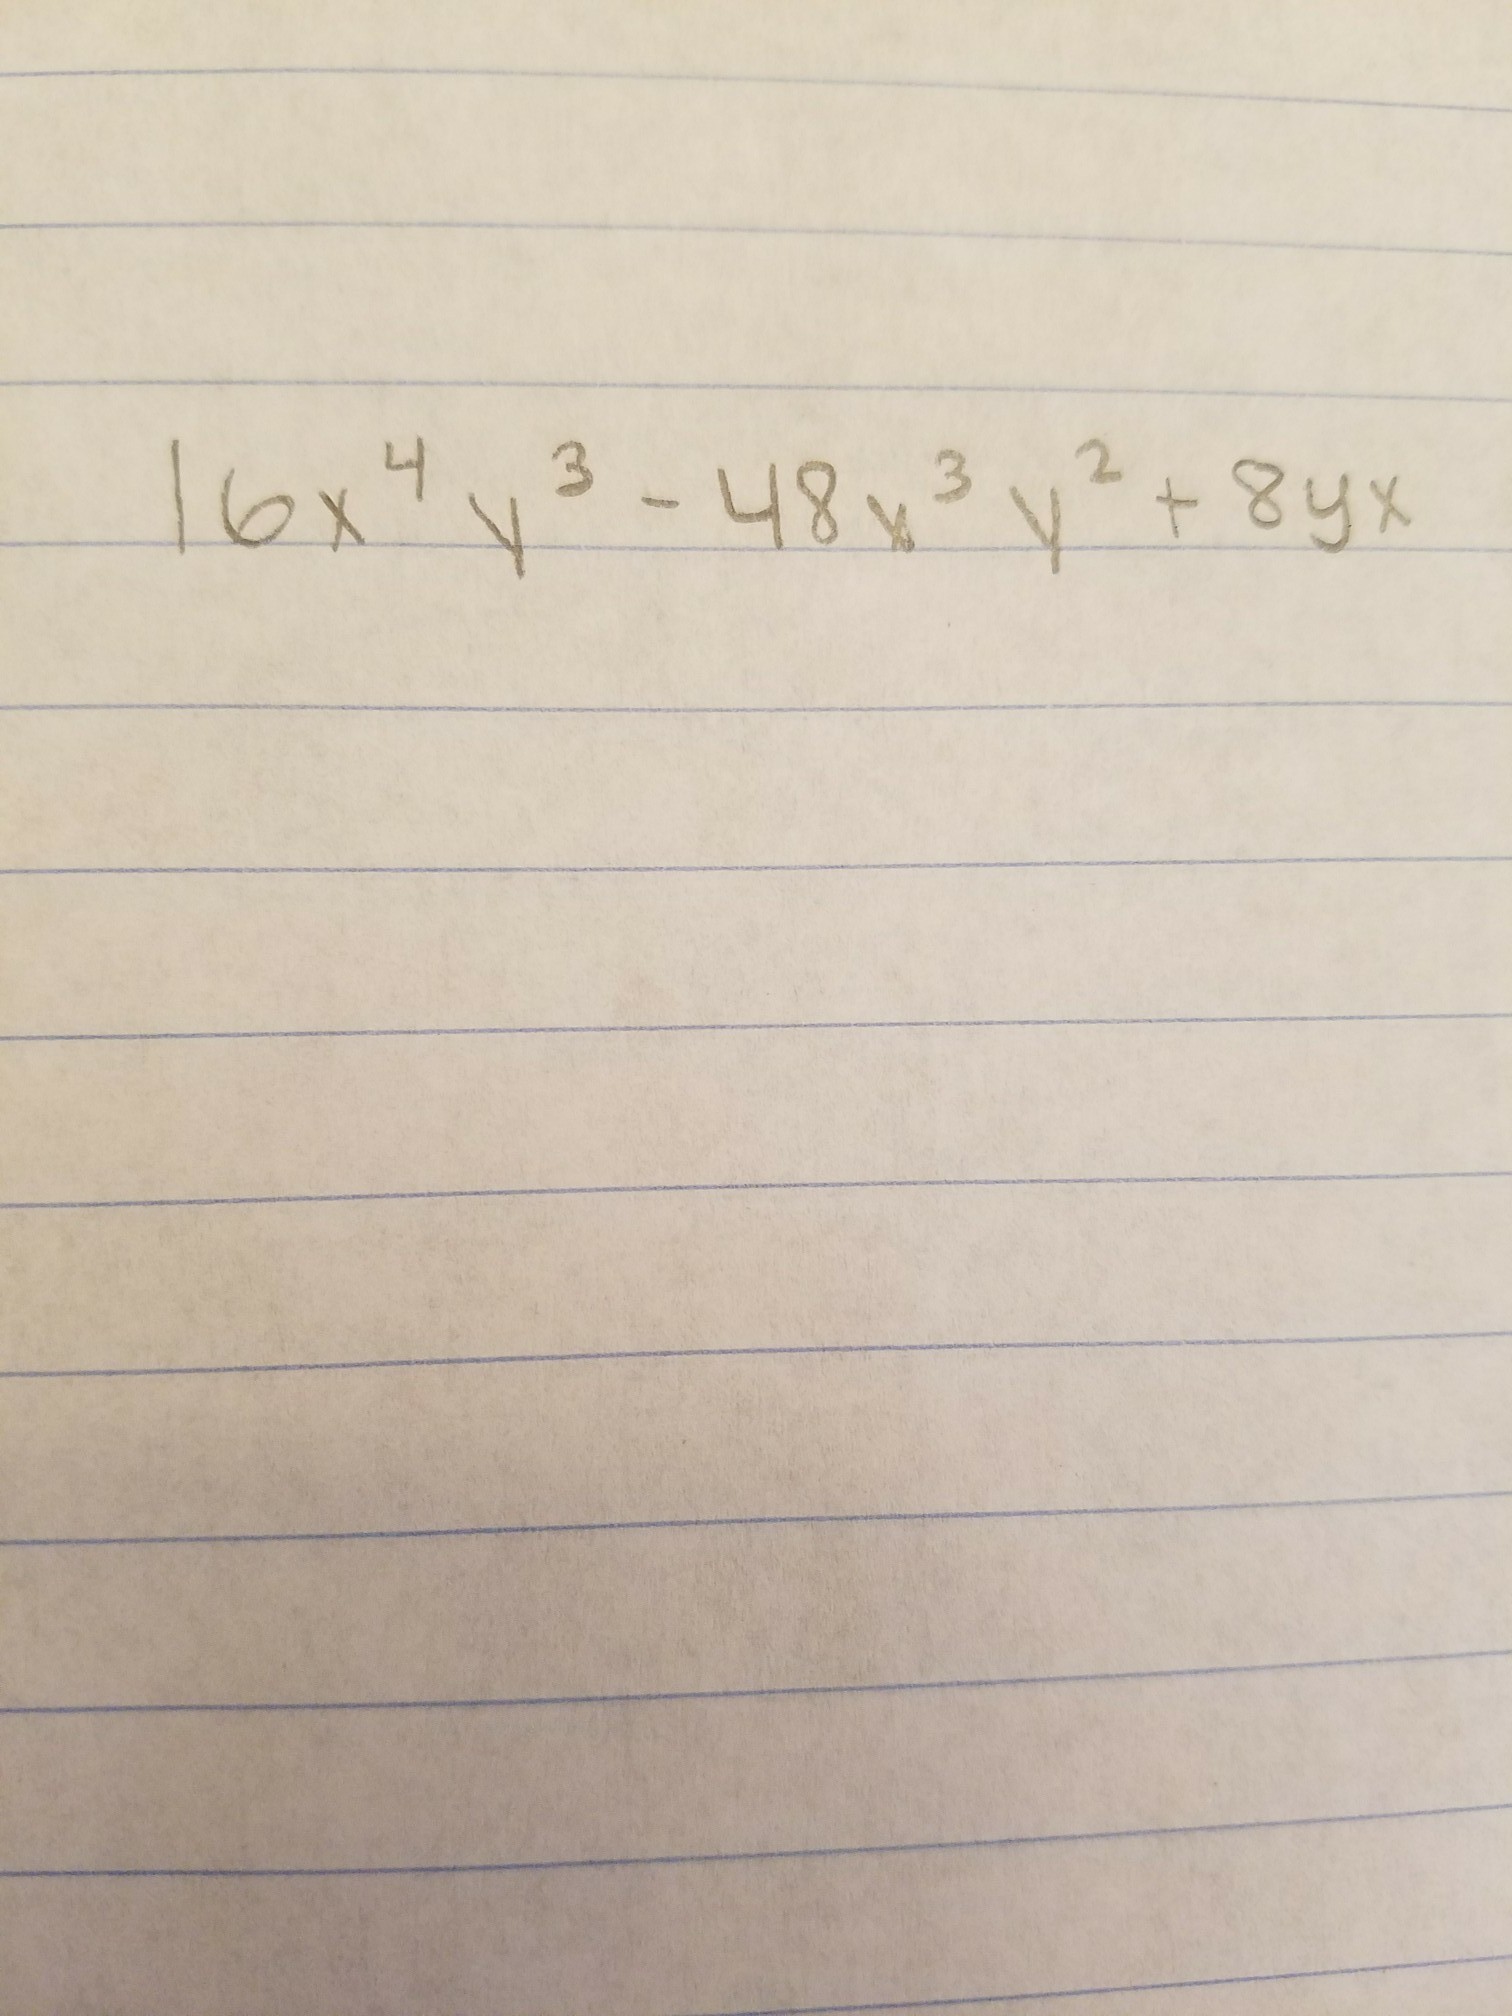 16x⁴y³ - 48x³y² + 8yx